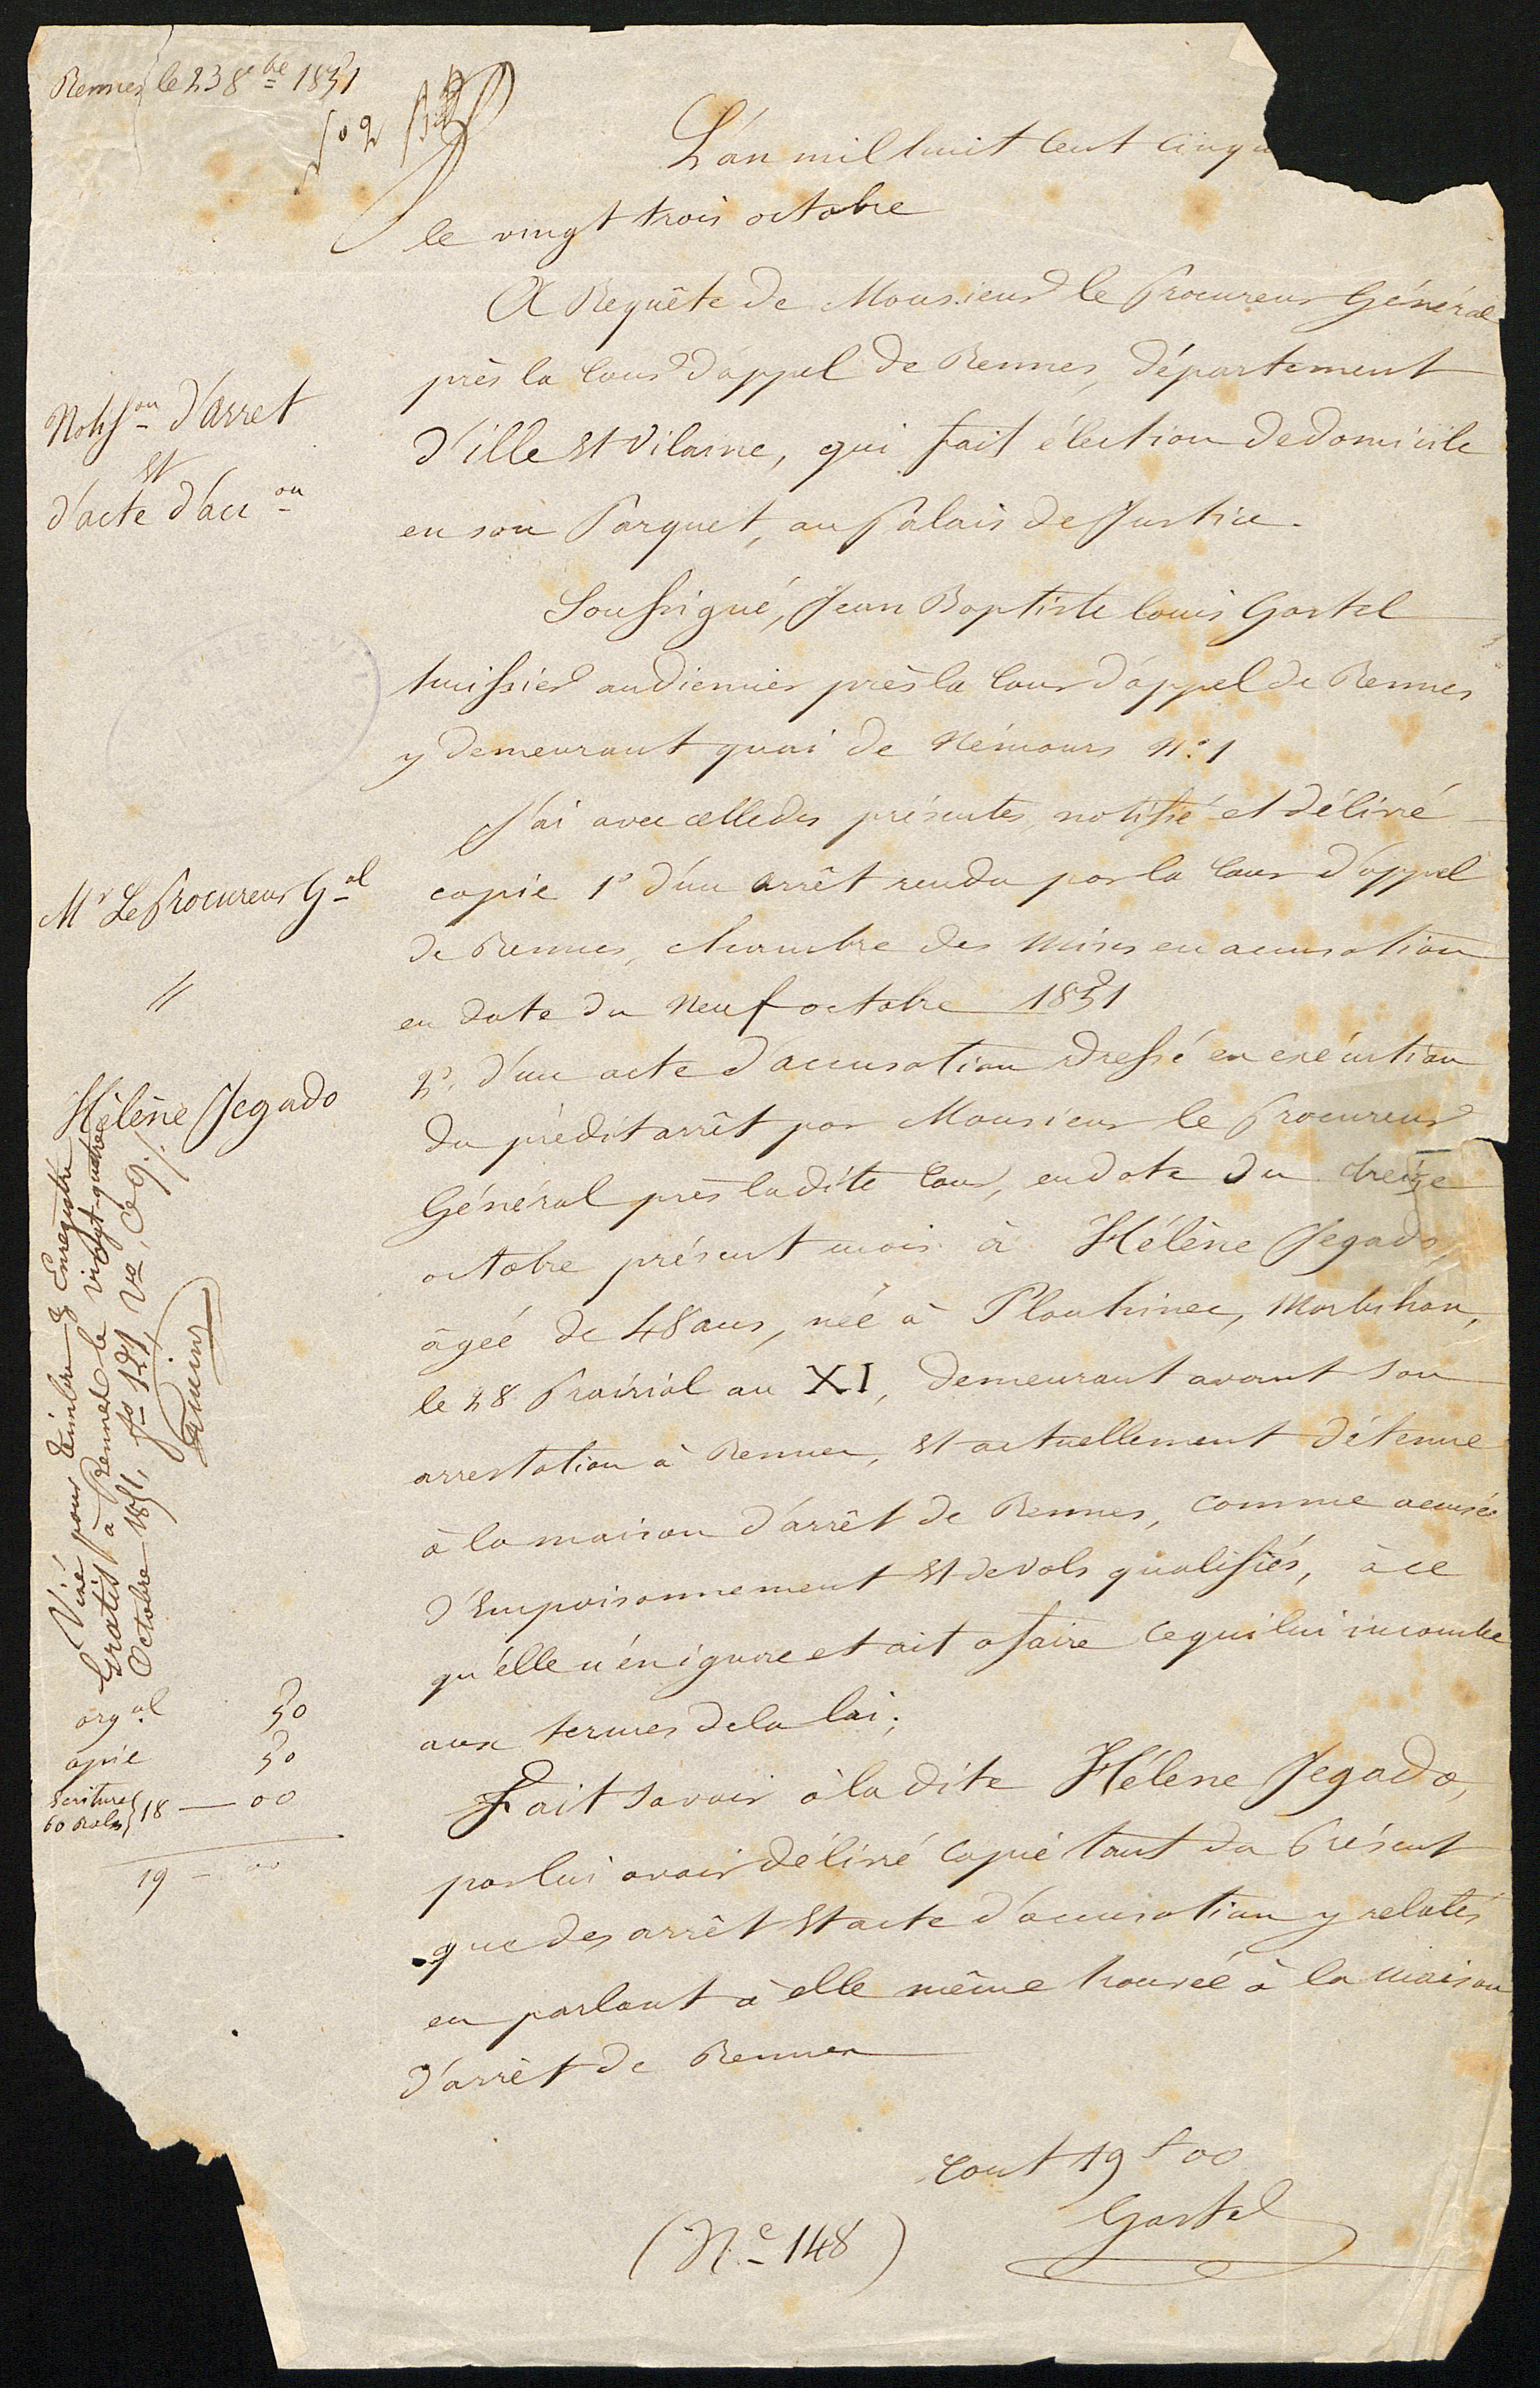 Rennes le 23 8bre 1851
L'an mil huit cent cinqu
le vingt trois octobre
A Requête de Monsieur le Procureur Général
près la Cour d'appel de Rennes, département
d'ille et Vilaine, qui fait élection de domicile
en son Parquet, au Palais de Justice.
Notifon d'arret
et
d'acte d'accon
Soussigné, Jean Baptiste Louis Gastel
huissier audiencier près la Cour d'appel de Rennes
y demeurant quai de Némours N° 1
J'ai avec celle des présentes, notifié et délivré
copie 1° d'un arrêt rendu par la Cour d'appel
de Rennes, chambre des mises en accusation
en date du neuf octobre 1851
2° d'un acte d'accusation dressé en exécution
du prédit arrêt par Monsieur le Procureur
Général près ladite Cour, en date du treize
octobre présent mois à Hélène Jegado,
âgeé de 48 ans, née à Plouhinec, Morbihan,
le 28 Prairial an XI, demeurant avant son
arrestation à Rennes, et actuellement détenue
à la maison d'arrêt de Rennes, comme accusée
d'Empoisonnement et de vols qualifiés, à ce
qu'elle n'en ignore et ait a faire ce qui lui incombe
aux termes de la loi;
Fait savoir à la dite Hélène Jegado,
par lui avoir délivré copie tant du Présent
que des arrêt et acte d'accusation y relatés
en parlant à elle même trouvée à la maison
d'arrêt de Rennes
Mr Le Procureur Gal
"
Hélène Jegado
Visé pour timbre & Enregistré
Gratis à Rennes le vingt-quatre
Octobre 1851, fo 121 Vo, Ce 9./.
orgal 50
copie 50
Ecritures
60 Roles } 18 — 00
19 — 00
Cout 19 f 00
Gastel
(N° 148)